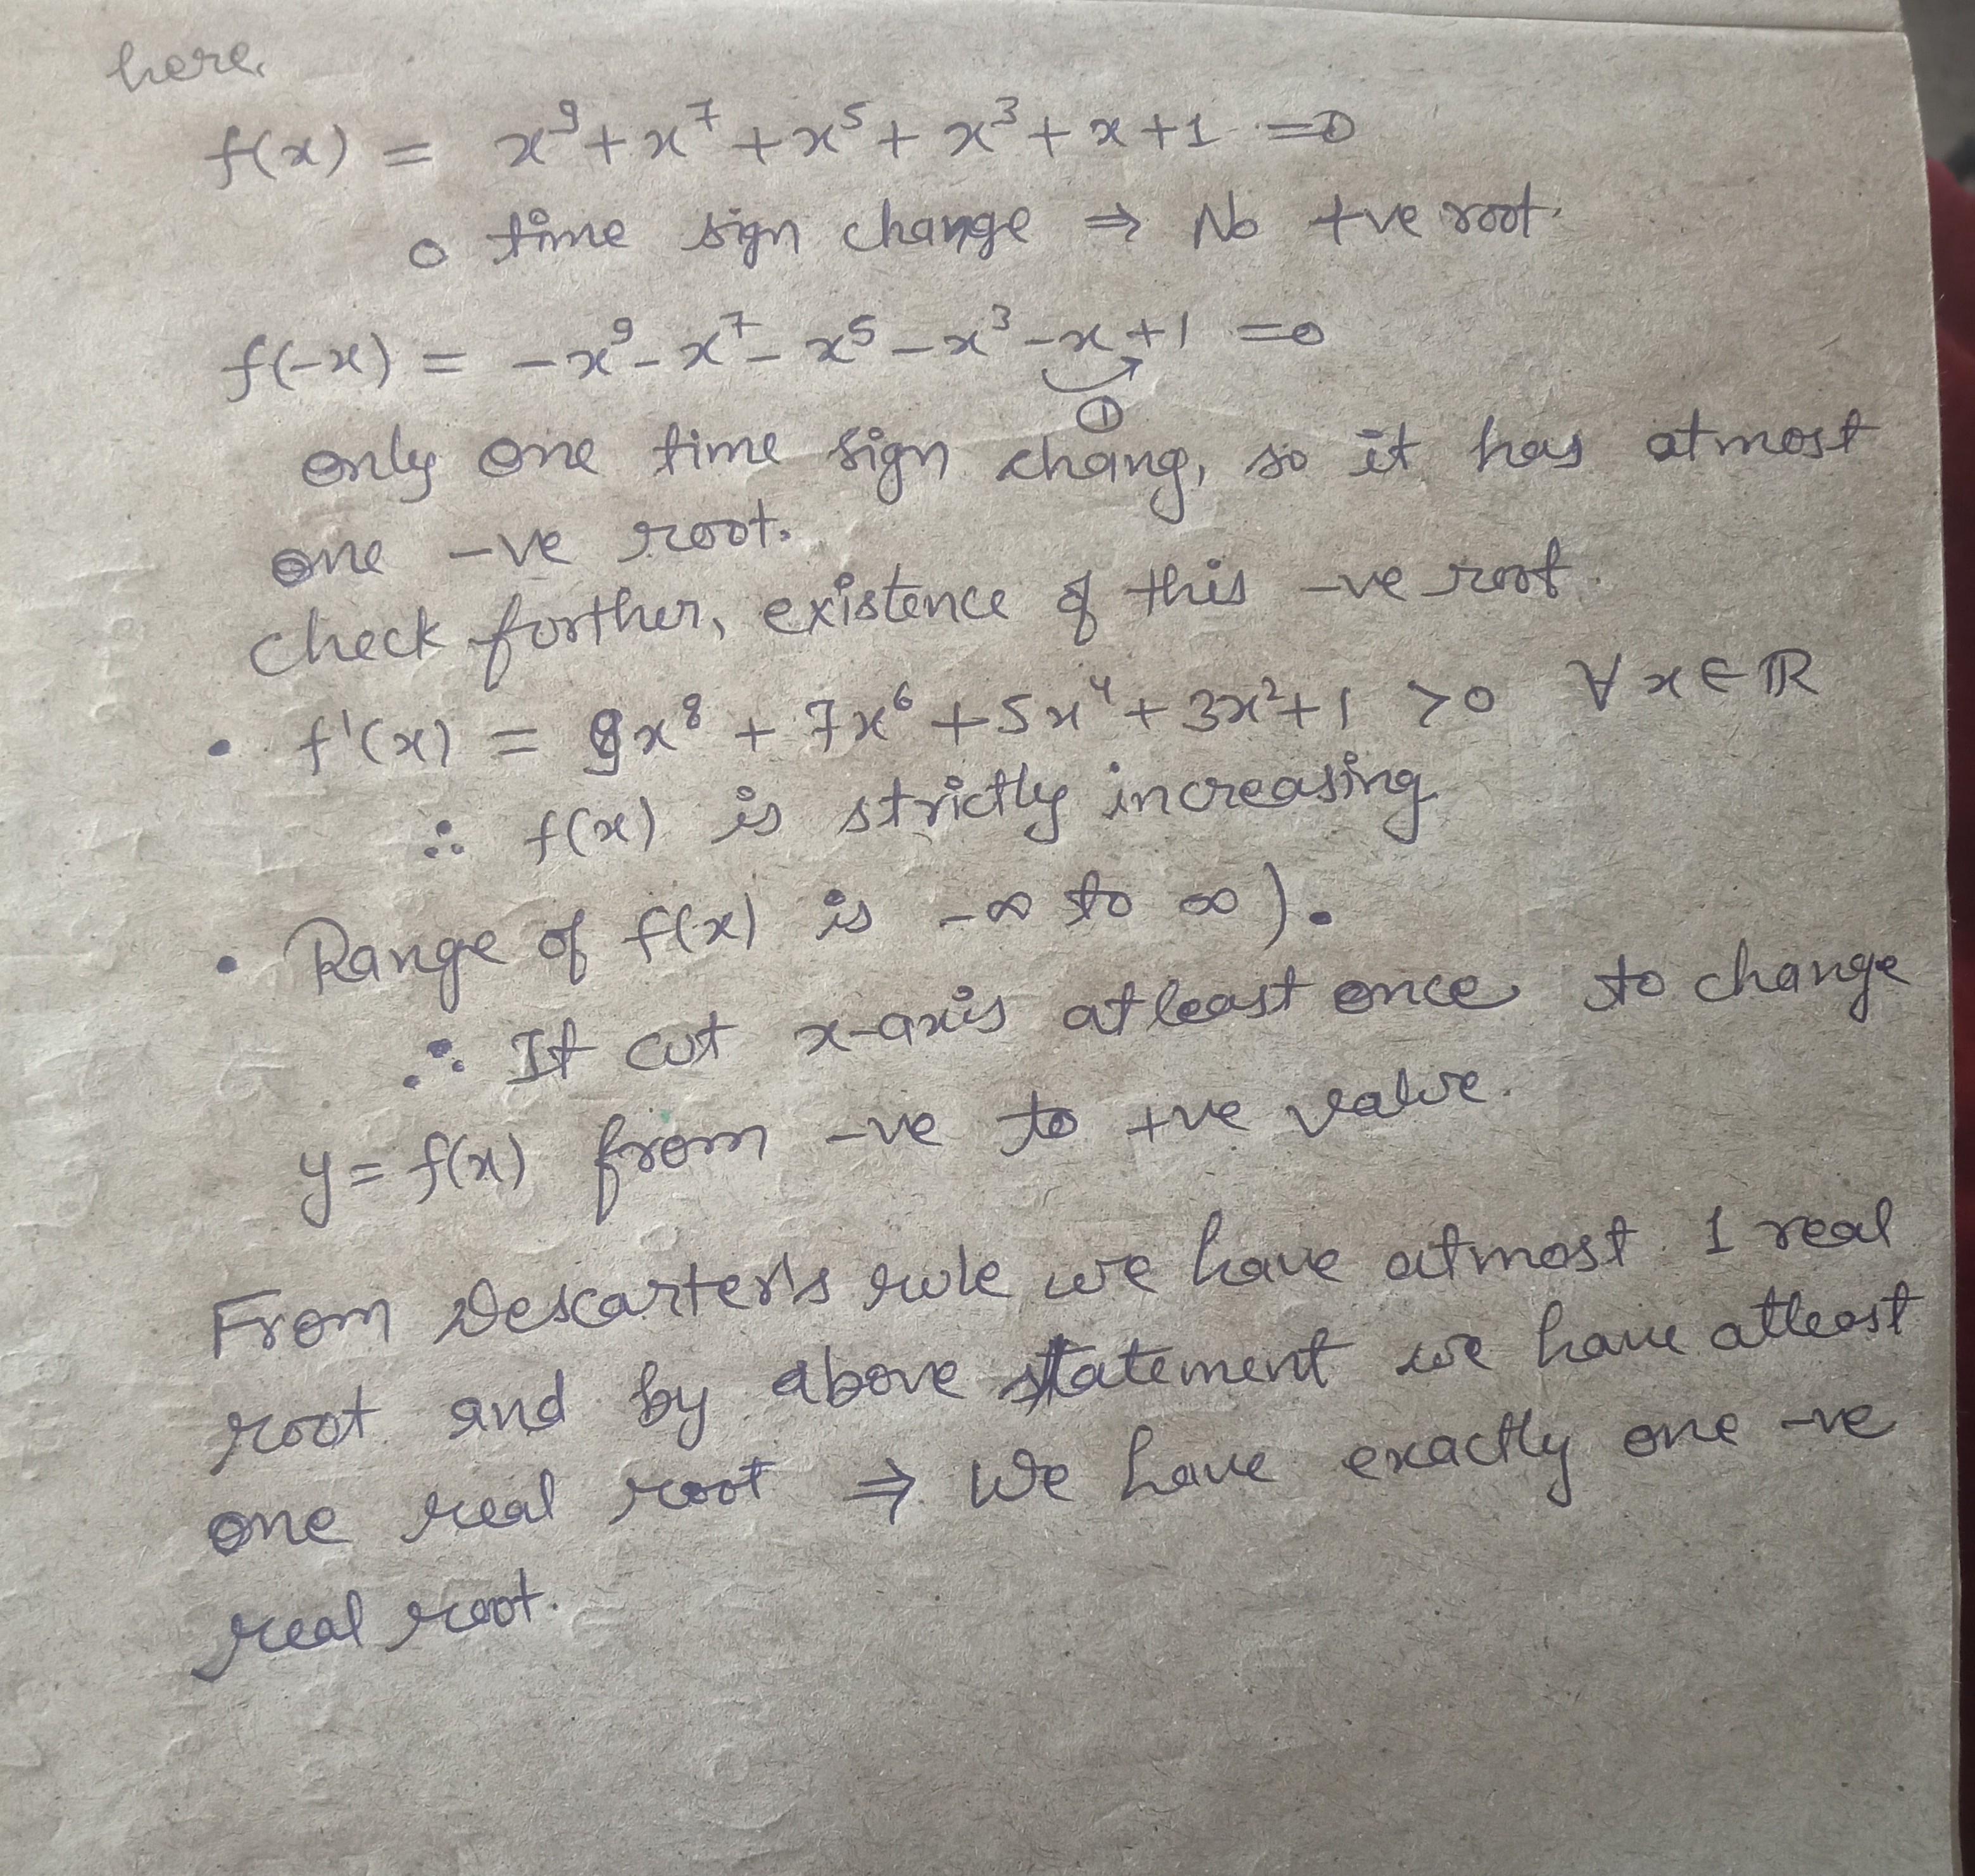 here,
f(x) = x⁹ + x⁷ + x⁵ + x³ + x + 1 = 0
0 time sign change ⇒ No +ve root.
f(-x) = -x⁹ - x⁷ - x⁵ - x³ - x + 1 = 0
①
only one time sign chang, so it has atmost
one -ve root.
check forther, existence of this -ve root.
• f'(x) = 9x⁸ + 7x⁶ + 5x⁴ + 3x² + 1 > 0 ∀ x ∈ ℝ
∴ f(x) is strictly increasing
• Range of f(x) is -∞ to ∞).
∴ It cut x-axis atleast once to change
y = f(x) from -ve to +ve value.
From Descarter's rule we have atmost 1 real
root and by above statement we have atleast
one real root ⇒ We have exactly one -ve
real root.